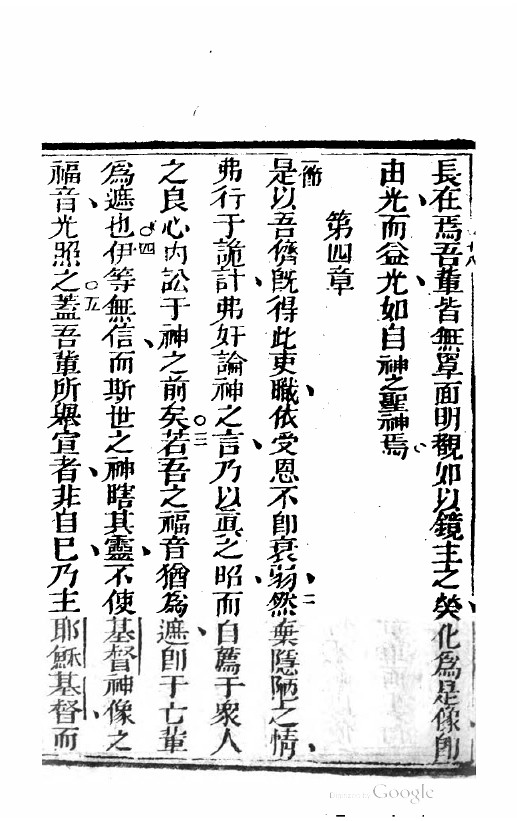 十八
長在焉吾輩皆無罩面明觀如以鏡主之煢化為是像即
由光而益光如自神之聖神焉
第四章
一節
是以吾儕既得此吏職依受恩不即衰弱然二棄隱陋之情
弗行于詭計弗奸論神之言乃以真之昭而自薦于衆人
之良心內訟于神之前矣○三若吾之福音猶為遮即于亡輩
為遮也○四伊等無信而斯世之神瞎其靈不使基督神像之
福音光照之○五蓋吾輩所舉宣者非自己乃主耶穌基督而
Digitized by Google